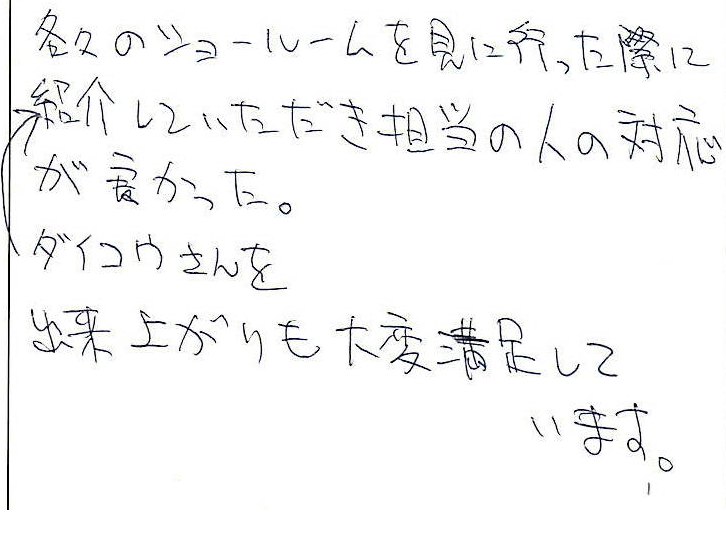 各々のショールームを見に行った際に
紹介していただき担当の人の対応
が良かった。
ダイコウさんを
出来上がりも大変満足して
います。